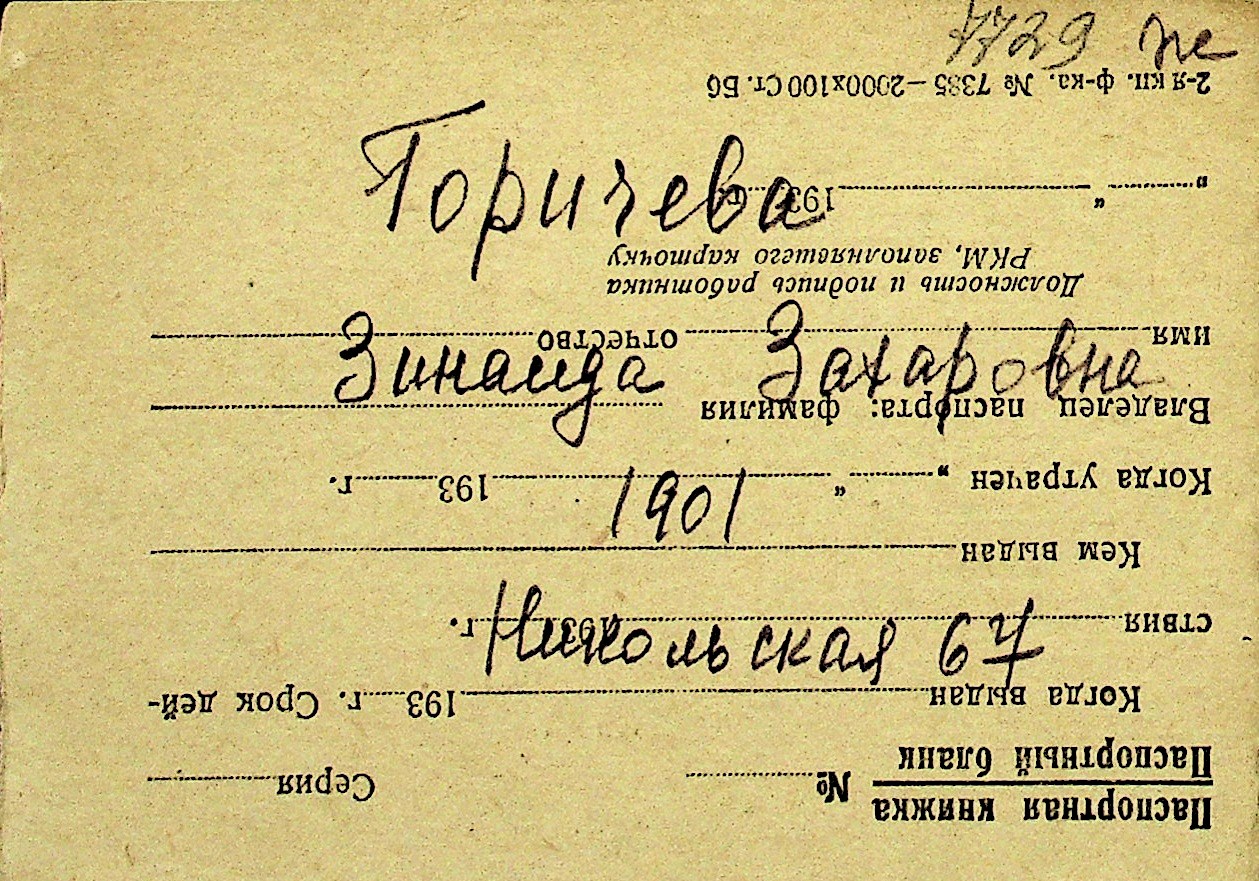 7729
Горичева
Зинаида Захаровна
1901
Никольская 67
Паспортная книжка
Паспортный бланк
№ Серия
Когда выдан 193 г. Срок дей-
ствия 193 г.
Кем выдан
Когда утрачен „ “ 193 г.
Владелец паспорта: фамилия
имя отчество
Должность и подпись работника
РКМ, заполняетего карточку
„ “ 193 г.
2-я кп. ф-ка. № 7385—2000х100 Ст. Бб